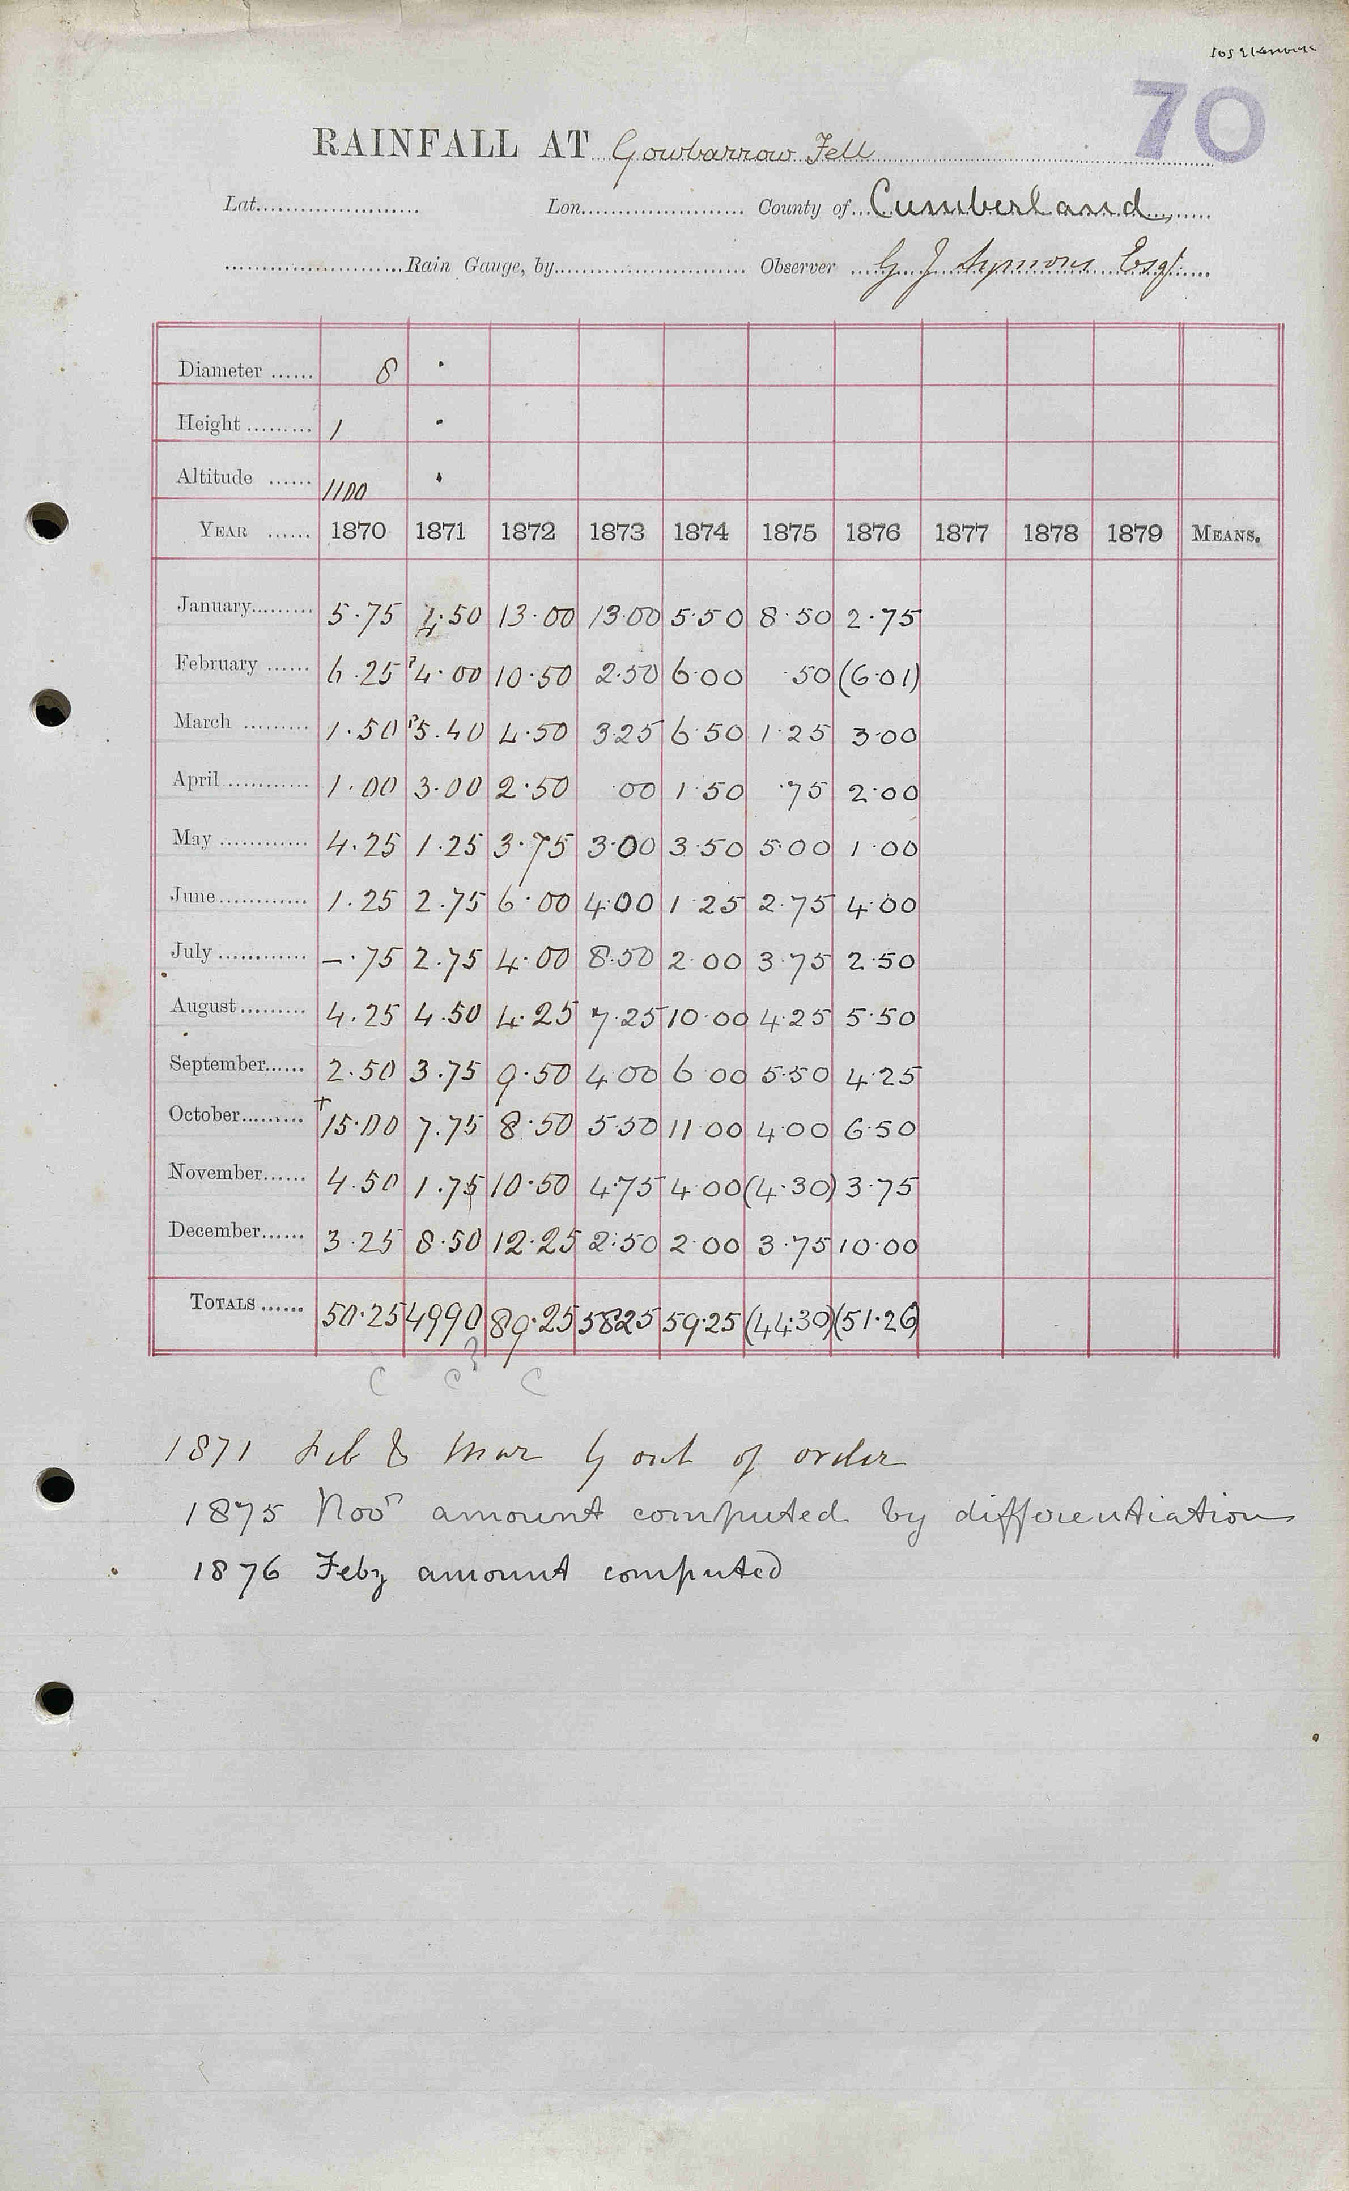 70
RAINFALL AT Gowbarrow Fell
Lat. Lon. County of Cumberland
Rain Gauge, by Observer G J Symons Esqr
Diameter 8 ·
Height 1 ·
Altitude 1100 ·
YEAR 1870 1871 1872 1873 1874 1875 1876 1877 1878 1879 MEANS.
January 5.75 4.50 13.00 13.00 5.50 8.50 2.75
February 6.25 ?4.00 10.50 2.50 6.00 .50 (6.01)
March 1.50 ?5.40 4.50 3.25 6.50 1.25 3.00
April 1.00 3.00 2.50 00 1.50 .75 2.00
May 4.25 1.25 3.75 3.00 3.50 5.00 1.00
June 1.25 2.75 6.00 4.00 1.25 2.75 4.00
July –.75 2.75 4.00 8.50 2.00 3.75 2.50
August 4.25 4.50 4.25 7.25 10.00 4.25 5.50
September 2.50 3.75 9.50 4.00 6.00 5.50 4.25
October †15.00 7.75 8.50 5.50 11.00 4.00 6.50
November 4.50 1.75 10.50 4.75 4.00 (4.30) 3.75
December 3.25 8.50 12.25 2.50 2.00 3.75 10.00
TOTALS 50.25 4990 89.25 5825 59.25 (44.30) (51.26)
C C? C
1871 Feb & Mar G out of order
1875 Novr amount computed by differentiation
1876 Feby amount computed